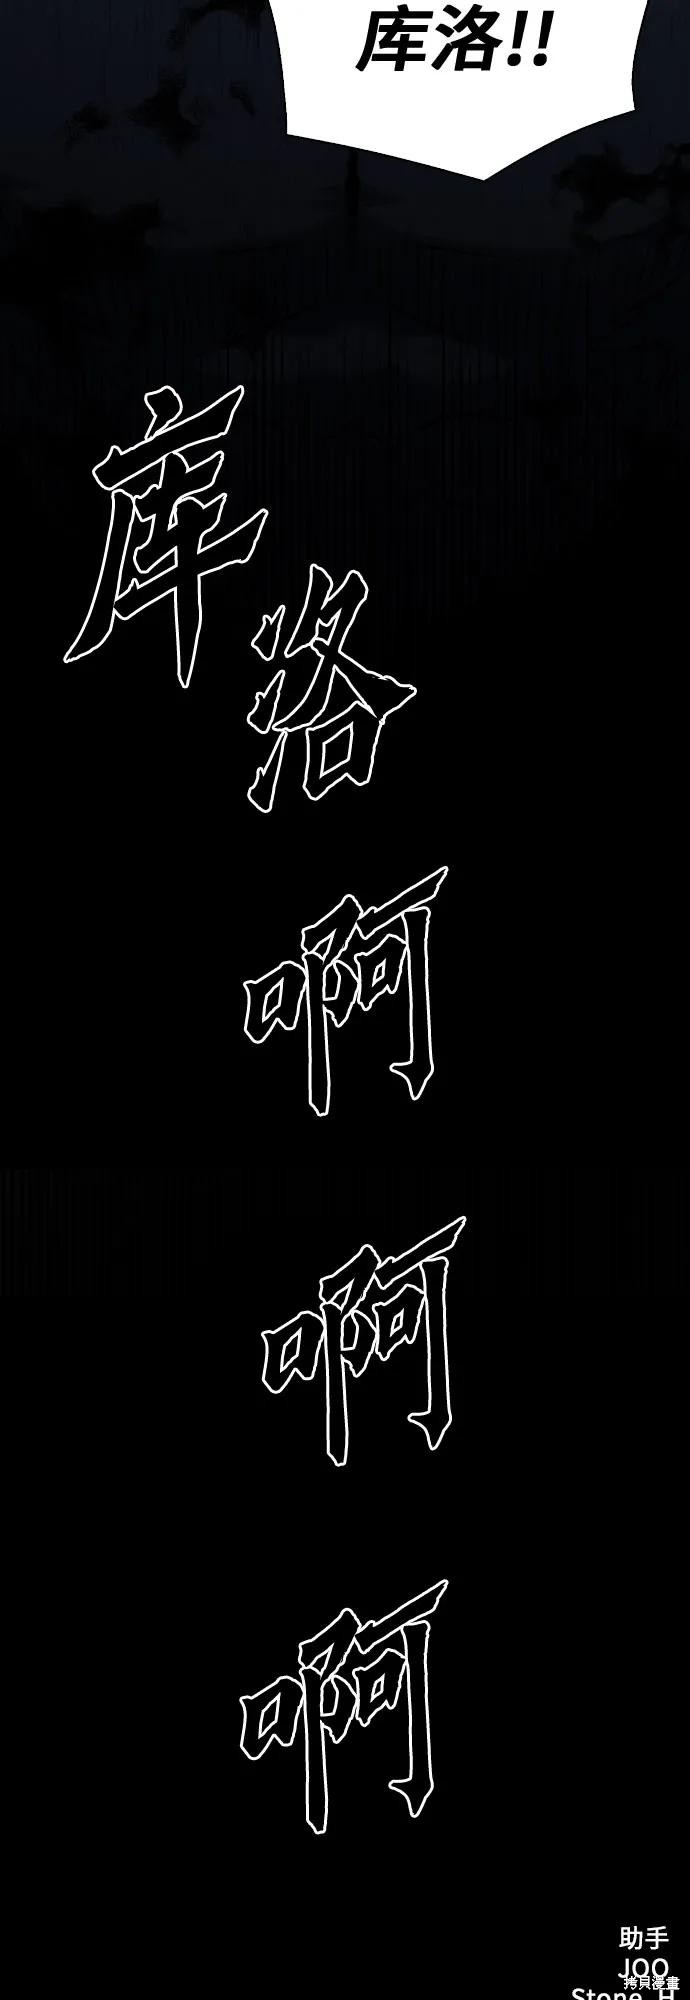 库洛!!
库
洛
啊
啊
啊
助手
JOO
拷貝漫畫
Stone_H